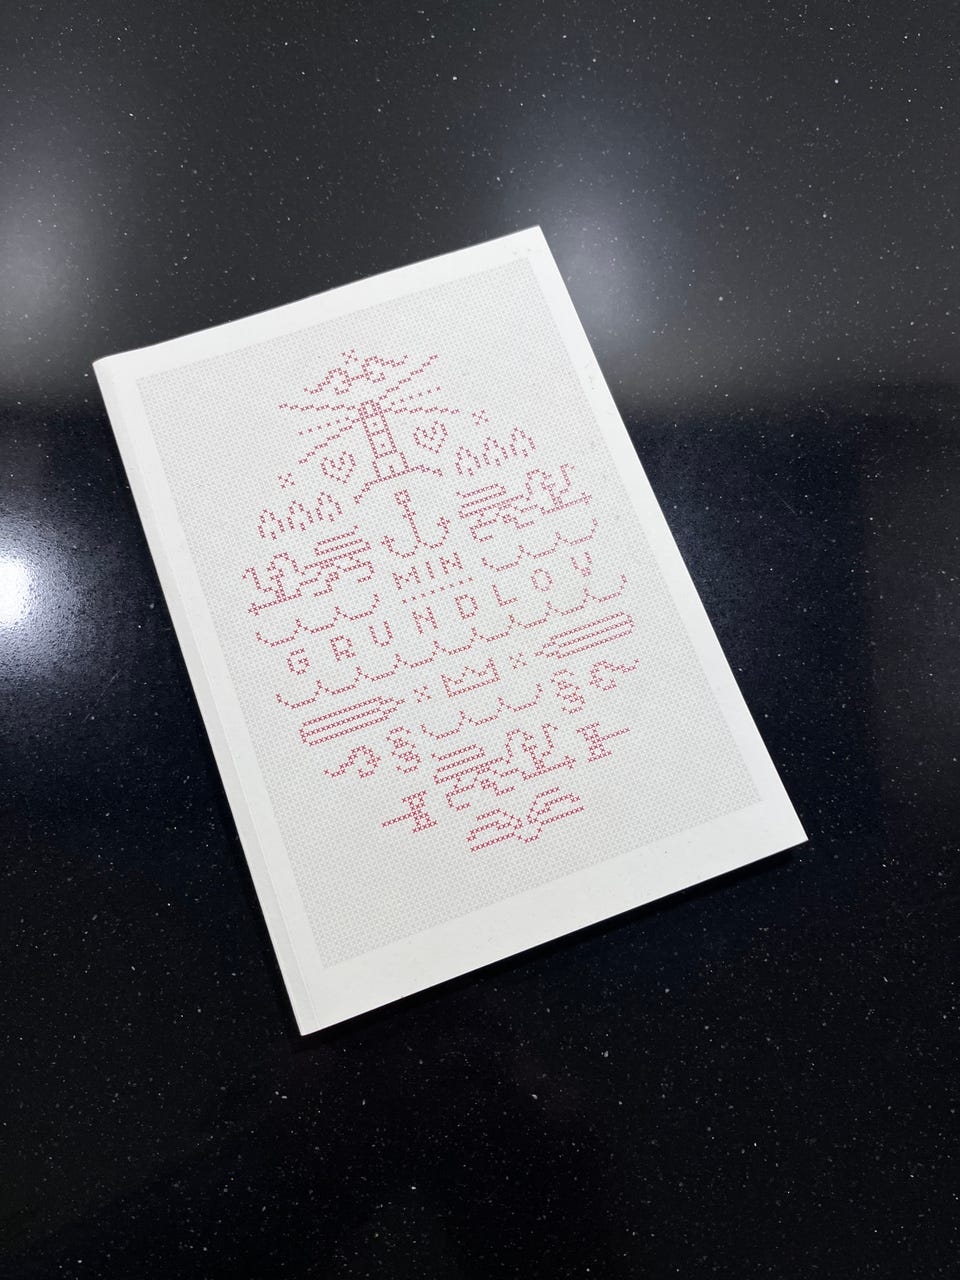 MIN
GRUNDLOV
§ §